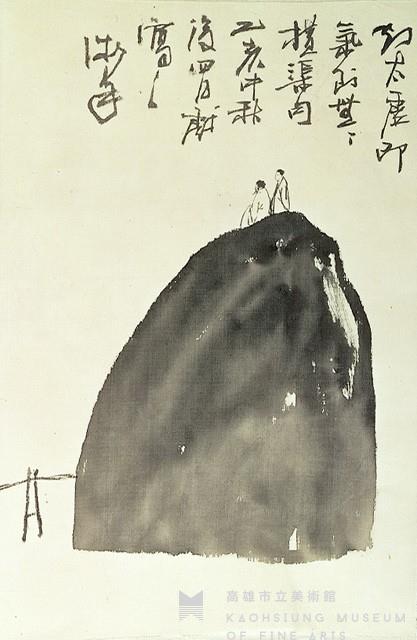 知太虛即
氣則無〻
橫渠句
乙亥中秋
後四日戲
寫
高雄市立美術館
KAOHSIUNG MUSEUM
OF FINE ARTS